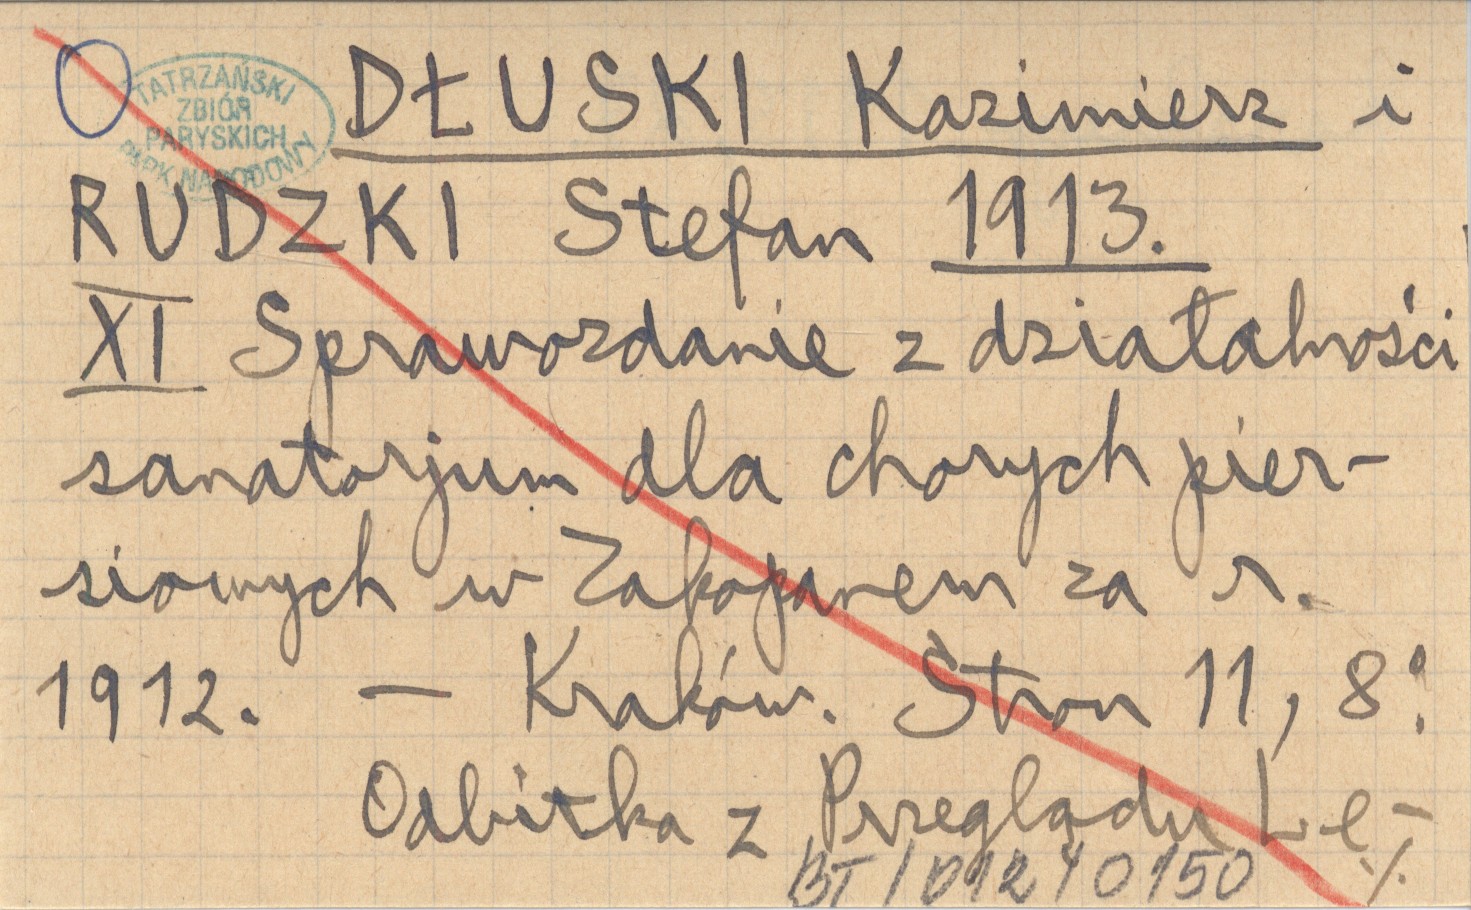 TATRZAŃSKI
ZBIÓR
PARYSKICH
PARK NARODOWY
DŁUSKI Kazimierz i
RUDZKI Stefan 1913.
XI Sprawozdanie z działalności
sanatorjum dla chorych pier-
siowych w Zakopanem za r.
1912. — Kraków. Stron 11, 8º.
Odbitka z Przeglądu Le-
BT/012/0150 ./.